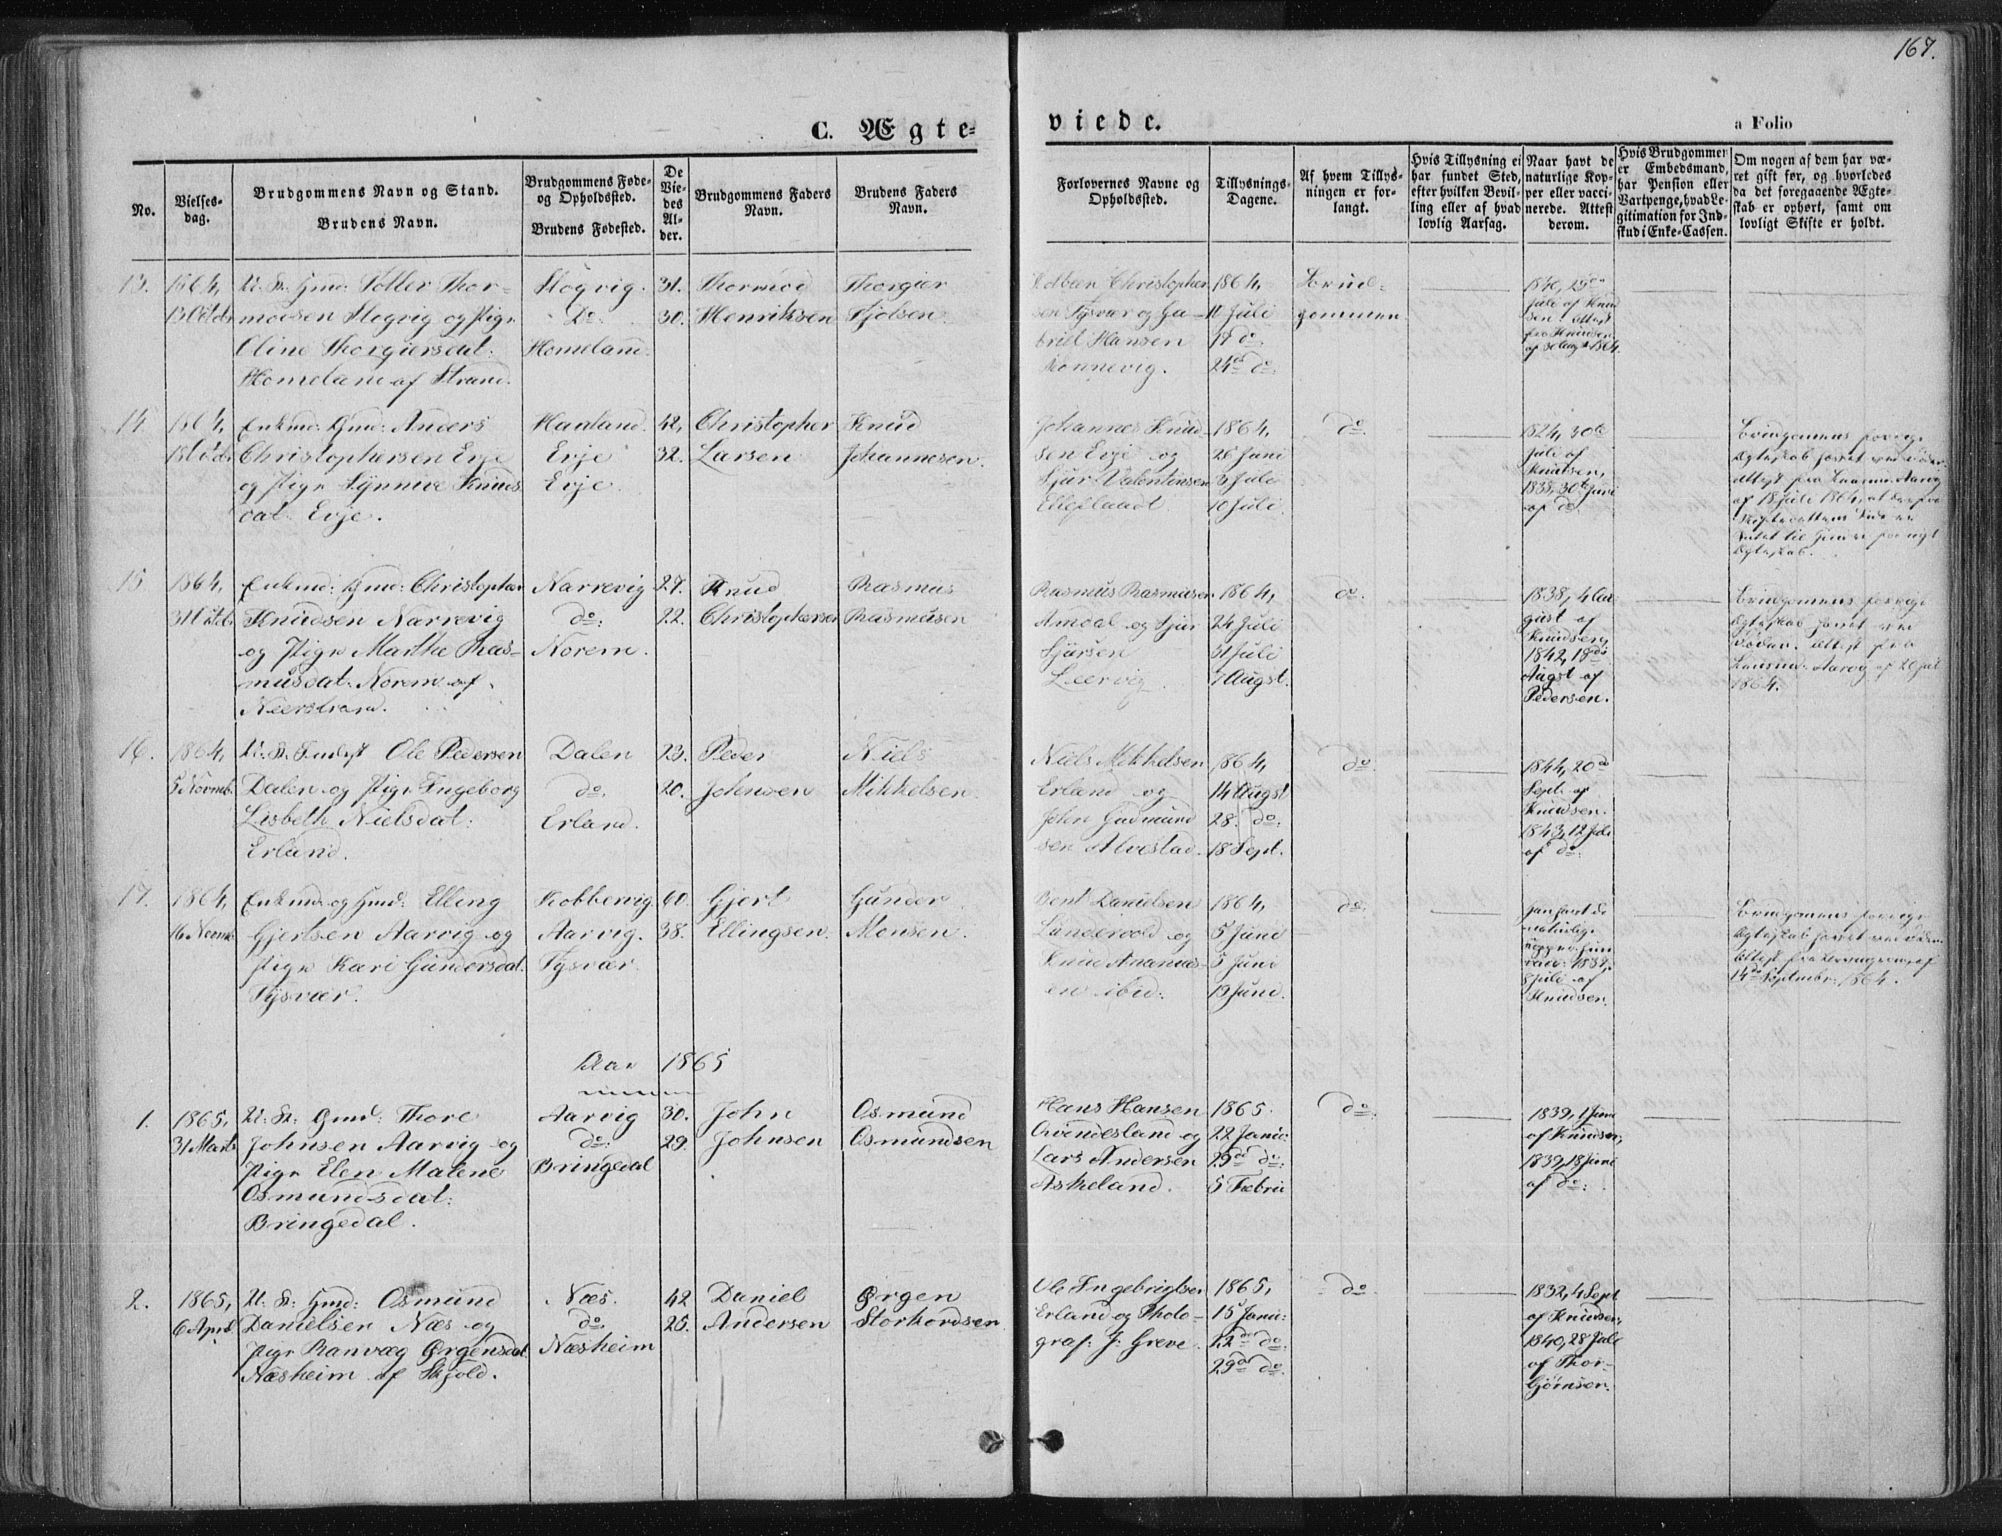 167.
C. Ægte-
viede.
a Folio
No.
Vielses-
dag.
Brudgommens Navn og Stand.
Brudens Navn.
Brudgommens Føde-
og Opholdssted.
Brudens Fødested.
De
Vie-
des
Al-
der.
Brudgommens Faders
Navn.
Brudens Faders
Navn.
Forlovernes Navne og
Opholdssted.
Tillysnings-
Dagene.
Af hvem Tillys-
ningen er for-
langt.
Hvis Tillysning ei
har fundet Sted,
efter hvilken Bevil-
ling eller af hvad
lovlig Aarsag.
Naar havt de
naturlige Kop-
per eller vacci-
nerede. Attest
derom.
Hvis Brudgommen
er Embedsmand,
har Pension eller
Vartpenge, hvad Le-
gitimation for Ind-
skud i Enke-Cassen.
Om nogen af dem har væ-
ret gift før, og hvorledes
da det foregaaende Ægte-
skab er ophørt, samt om
lovligt Skifte er holdt.
13.
1864,
13 Octbr
U: St: Gmd: Soller Thor-
modsen Slogvig og Pige
Oline Thorgiersdat:
Homeland af Strand.
Slogvig.
Do:
Homeland.
31.
30.
Thormod
Henriksen
Thorgier
Kolbein Christopher-
sen Tysvær og Ga-
briel Hansen
Ronnevig.
1864,
11 Juli
17 do
24de do:
Brud-
gommen
1840, 25de
Juli af Knud
sen. Attest
fra Knudsen
af 30 Aug 1864.
14.
1864,
13 Octbr
Enkmd: Gmd: Anders
Christophersen Evje
og Pige Synneve Knuds
dat. Evje.
Haaland.
Evje
Evje
42,
32.
Christopher
Larsen
Knud
Johannesen.
Johannes Knud-
sen Evje og
Sjur Valentinsen
1864,
26 Juni
3 Juli
10 Juli.
do
1824, 30te
Juli af
Knudsen,
1835, 30te Juni
af do
Brudgomens forrige
Ægteskab hævet ved Døden
Attest fra
af 18 Juli 1864, at derfra
Skifterettens Side er
Intet til Hinder for nyt
Ægteskab.
15
1864,
31 Octbr
Enkmd: Gmd: Christopher
Knudsen Narrevig
og Pige Marthe Ras-
musdat. Norem af
Neerstrand.
Narrevig
do:
Norem.
27.
22.
Knud
Christophersen
Rasmus
Rasmusen
Rasmus Rasmusen
Amdal og Sjur
Sjursen
Leervig
1864,
24 Juli
31 Juli
7 Augst.
do:
1838, 4 Au
gust af
Knudsen,
1842, 18de
Augst af
Pedersen.
Brudgomens forrige
Ægteskab hævet ved
Døden. Attest fra
Aarvig af 20 Juli
1864.
16.
1864,
5 Novmb.
U: St: Ole Pedersen
Dalen og Pige Ingeborg
Lisbeth Nielsdat:
Erland.
Dalen
do.
Erland.
23.
20.
Peder
Johnsen
Niels
Mikkelsen.
Niels Mikkelsen
Erland og
John Gudmund
sen Alvestad.
1864,
14 Augst
28. do:
18 Sept.
do.
1844, 20de
Sept. af
Knudsen.
1843, 12 Juli
af do:
17.
1864,
16 Novmb.
Enkmd og Gmd: Elling
Gjertsen Aarvig og
Pige Kari Gundersdat.
Tysvær.
Kobbervig
Aarvig.
Tysvær.
60.
38.
Gjert
Ellingsen.
Gunder
Monsen.
Bent Danielsen
Lundervold og
Knud Ananias-
en ibid:
1864,
5 Juni
5 Juni
19 Juni.
do:
Han havt de
naturlige
Kopper, hun
vacc: 1832,
8 Juli af
Knudsen.
Brudgomens forrige
Ægteskab hævet ved Døden
Attest fra
14de Septembr: 1864.
Aar 1865
1.
1865,
31 Marts
U: St: Gmd: Thore
Johnsen Aarvig og
Pige Elen Malene
Osmundsdat:
Bringedal.
Aarvig
do:
Bringedal
30.
29.
John
Johnsen
Osmund
Osmundsen
Hans Hansen
Ovendesland og
Lars Andersen
Askeland.
1865.
22 Janu:
29de do:
5 Febru
do:
1839, 1 Juni
af Knudsen,
1839, 18 Juni
af do:
2.
1865,
6 April
U: St: Gmd: Osmund
Danielsen Næs og
Pige Ranvæg Ørgensdat.
Næsheim af Skjold.
Næs.
do.
Næsheim
42
25.
Daniel
Andersen
Ørgen
Storkordsen
Ole Ingebrigtsen
Erland og Photo-
graf: J: Greve.
1865,
15 Janu:
22de do:
29de do:
do
1832, 4 Sept
af Knudsen,
1840, 28 Juli
af Thor-
bjørnsen.